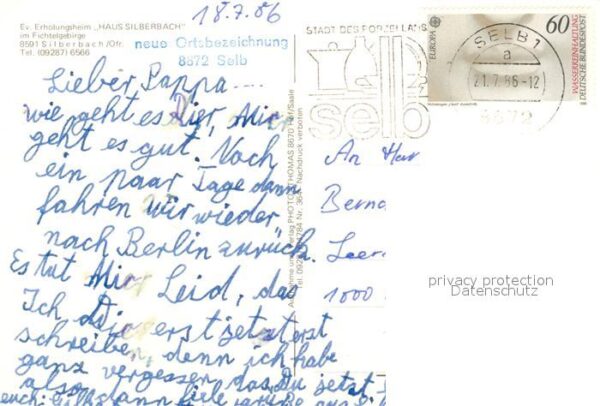 18.7.86
Ev. Erholungsheim „HAUS SILBERBACH"
im Fichtelgebirge
8591 Silberbach/Ofr.
Tel. (09287) 6566
neue Ortsbezeichnung
8672 Selb
Lieber Pappa....
wie geht es Dier, Mir
geht es gut. Noch
ein paar Tage dann
fahren wir wieder
nach Berlin zurück.
Es tut Mir Leid, das
Ich Dir erst jetzt erst
schreiben, denn ich habe
ganz vergessen das Du jetzt
also dann viele
PHOTO THOMAS 8670 Hof/Saale
Nachdruck verboten
STADT DES PORZELLANS
selb
SELB 1
a
21.7.86-12
8672
EUROPA
60
WASSERREINHALTUNG
DEUTSCHE BUNDESPOST
An Herr
Berna
Leer
1000
privacy protection
Datenschutz